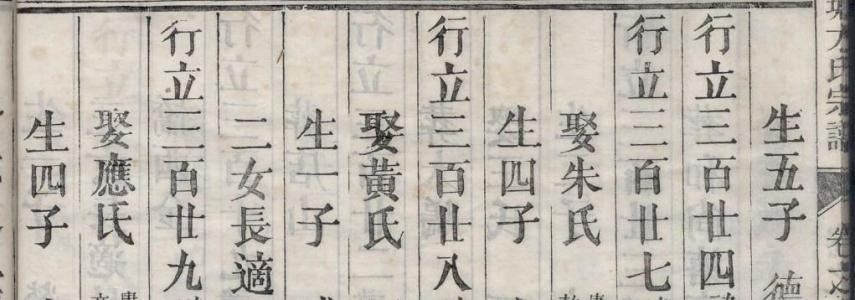 塘方氏宗譜 卷之
生五子 德
行立三百廿四
行立三百廿七
娶朱氏
生四子
行立三百廿八
娶黃氏
生一子
二女長適
行立三百廿九
娶應氏
生四子